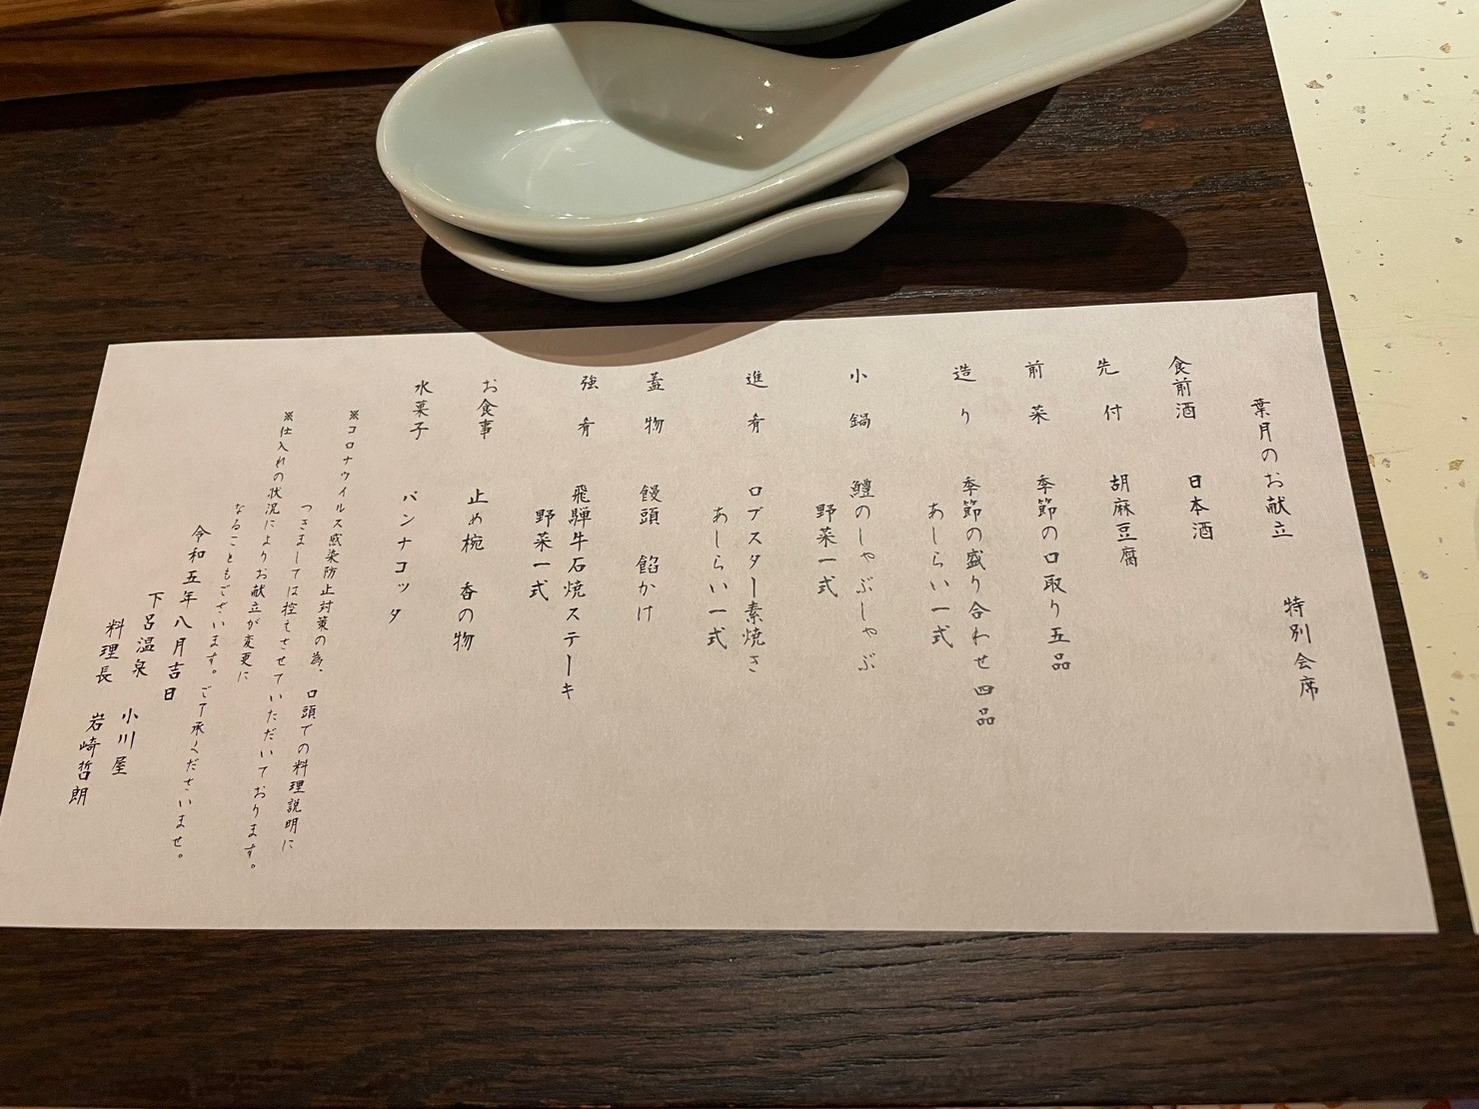 葉月のお献立　特別会席
食前酒　日本酒
先付　胡麻豆腐
前菜　季節の口取り五品
造り　季節の盛り合わせ　四品
あしらい一式
小鍋　鱧のしゃぶしゃぶ
野菜一式
進肴　ロブスター素焼き
あしらい一式
蓋物　饅頭　餡かけ
強肴　飛騨牛石焼ステーキ
野菜一式
お食事　止め椀　香の物
水菓子　パンナコッタ
※コロナウイルス感染防止対策の為、口頭での料理説明に
つきましては控えさせていただいております。
※仕入れの状況によりお献立が変更に
なることもございます。ご了承くださいませ。
令和五年八月吉日
下呂温泉　小川屋
料理長　岩崎哲朗